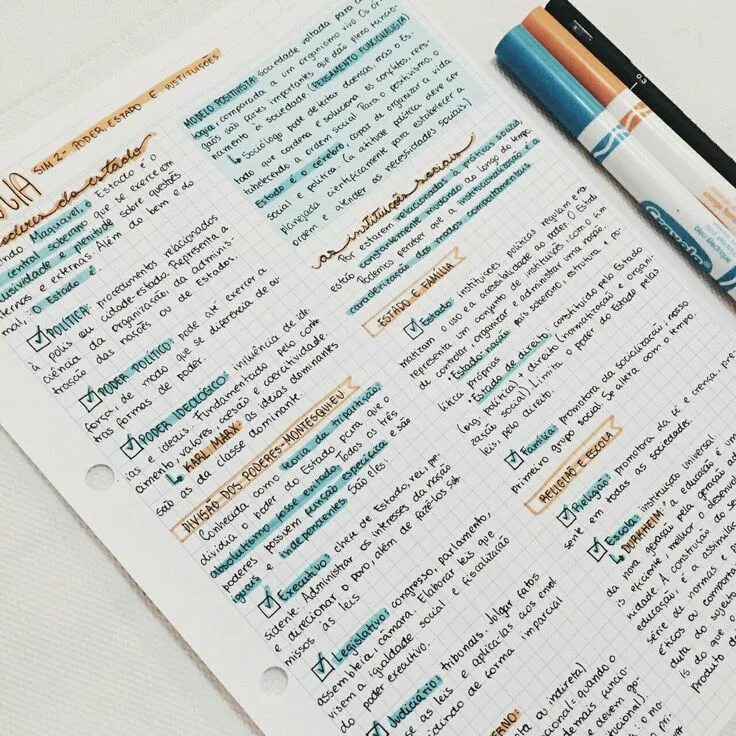 GIA
SIM 2 - PODER, ESTADO E INSTITUIÇÕES
do estado
Maquiavel, o Estado é o
central soberano que se exerce com
e plenitude sobre questões
ternas e externas. Além do bem e do
mal, O Estado é:
POLÍTICA: procedimentos relacionados
à pólis ou cidade-estado. Representa a
ciência da organização, da adminis-
tração das nações ou de Estados.
PODER POLÍTICO: pode até exercer a
força, de modo que se diferencia de ou-
tras formas de poder.
PODER IDEOLÓGICO: influência de ide-
ias e ideais. Fundamentado pelo conh
amento, valores, coesão e coercitividade.
↳ KARL MARX: as ideias dominantes
são as da classe dominante.
DIVISÃO DOS PODERES-MONTESQUIEU
Conhecida como teoria da tripartição,
dividia o poder do Estado para que o
absolutismo fosse evitado. Todos os três
poderes possuem função específica e são
iguais e independentes. São eles:
Executivo: chefe de Estado, rei, pre
sidente. Administrar os interesses da nação
e direcionar o povo, além de fazê-los sub
missos às leis
Legislativo: congresso, parlamento,
assembleia, câmara. Elaborar leis que
visem a igualdade social e fiscalização
do poder executivo.
Judiciário: tribunais. Julgar fatos
se as leis e aplicá-las aos
de forma imparcial
MODELO POSITIVISTA: Sociedade voltada para a
lógica, comparada a um organismo vivo. Os ór-
gãos são partes importantes que dão pleno funcio-
namento à sociedade (PENSAMENTO FUNCIONALISTA)
↳ Sociólogo pode detectar doenças, mas o Es-
tado que condena e soluciona os conflitos rees-
tabelecendo a ordem social. Para o positivismo, o
Estado é o cérebro, capaz de organizar a vida
social e política (a atitude política deve ser
planejada cientificamente para estabelecer a
ordem e atender às necessidades sociais)
as instituições sociais
Por estarem relacionadas à práticas sociais,
estão constantemente mudando ao longo do tempo.
Podemos perceber que a institucionalização é a
caracterização dos modos comportamentais
ESTADO E FAMÍLIA
Estado: instituições políticas regulam e no
matizam o uso e a acessibilidade ao poder. O Estado
representa um conjunto de instituições, com o fim
de controlar, organizar e administrar uma nação.
Estado nação: país soberano, estrutura e po
lítica próprias
Estado de direito: constituído pelo Estado
(org. política) e direito (normatização e organi-
zação social). Limita o poder do Estado pelas
leis, pelo direito.
Família: promotora da socialização, nosso
primeiro grupo social. Se altera com o tempo.
RELIGIÃO E ESCOLA
Religião: promotora da fé e crença, pre
sente em todas as sociedades.
Escola: instituição universal
↳ DURKHEIM: a educação é um
da nova geração pela geração ad
is eficiente, melhor o desenvol
nidade. A construção do se
educação, é a assimila
série de normas e p
éticos ou comporta
duta do sujeito
is do que
produto d
0.3